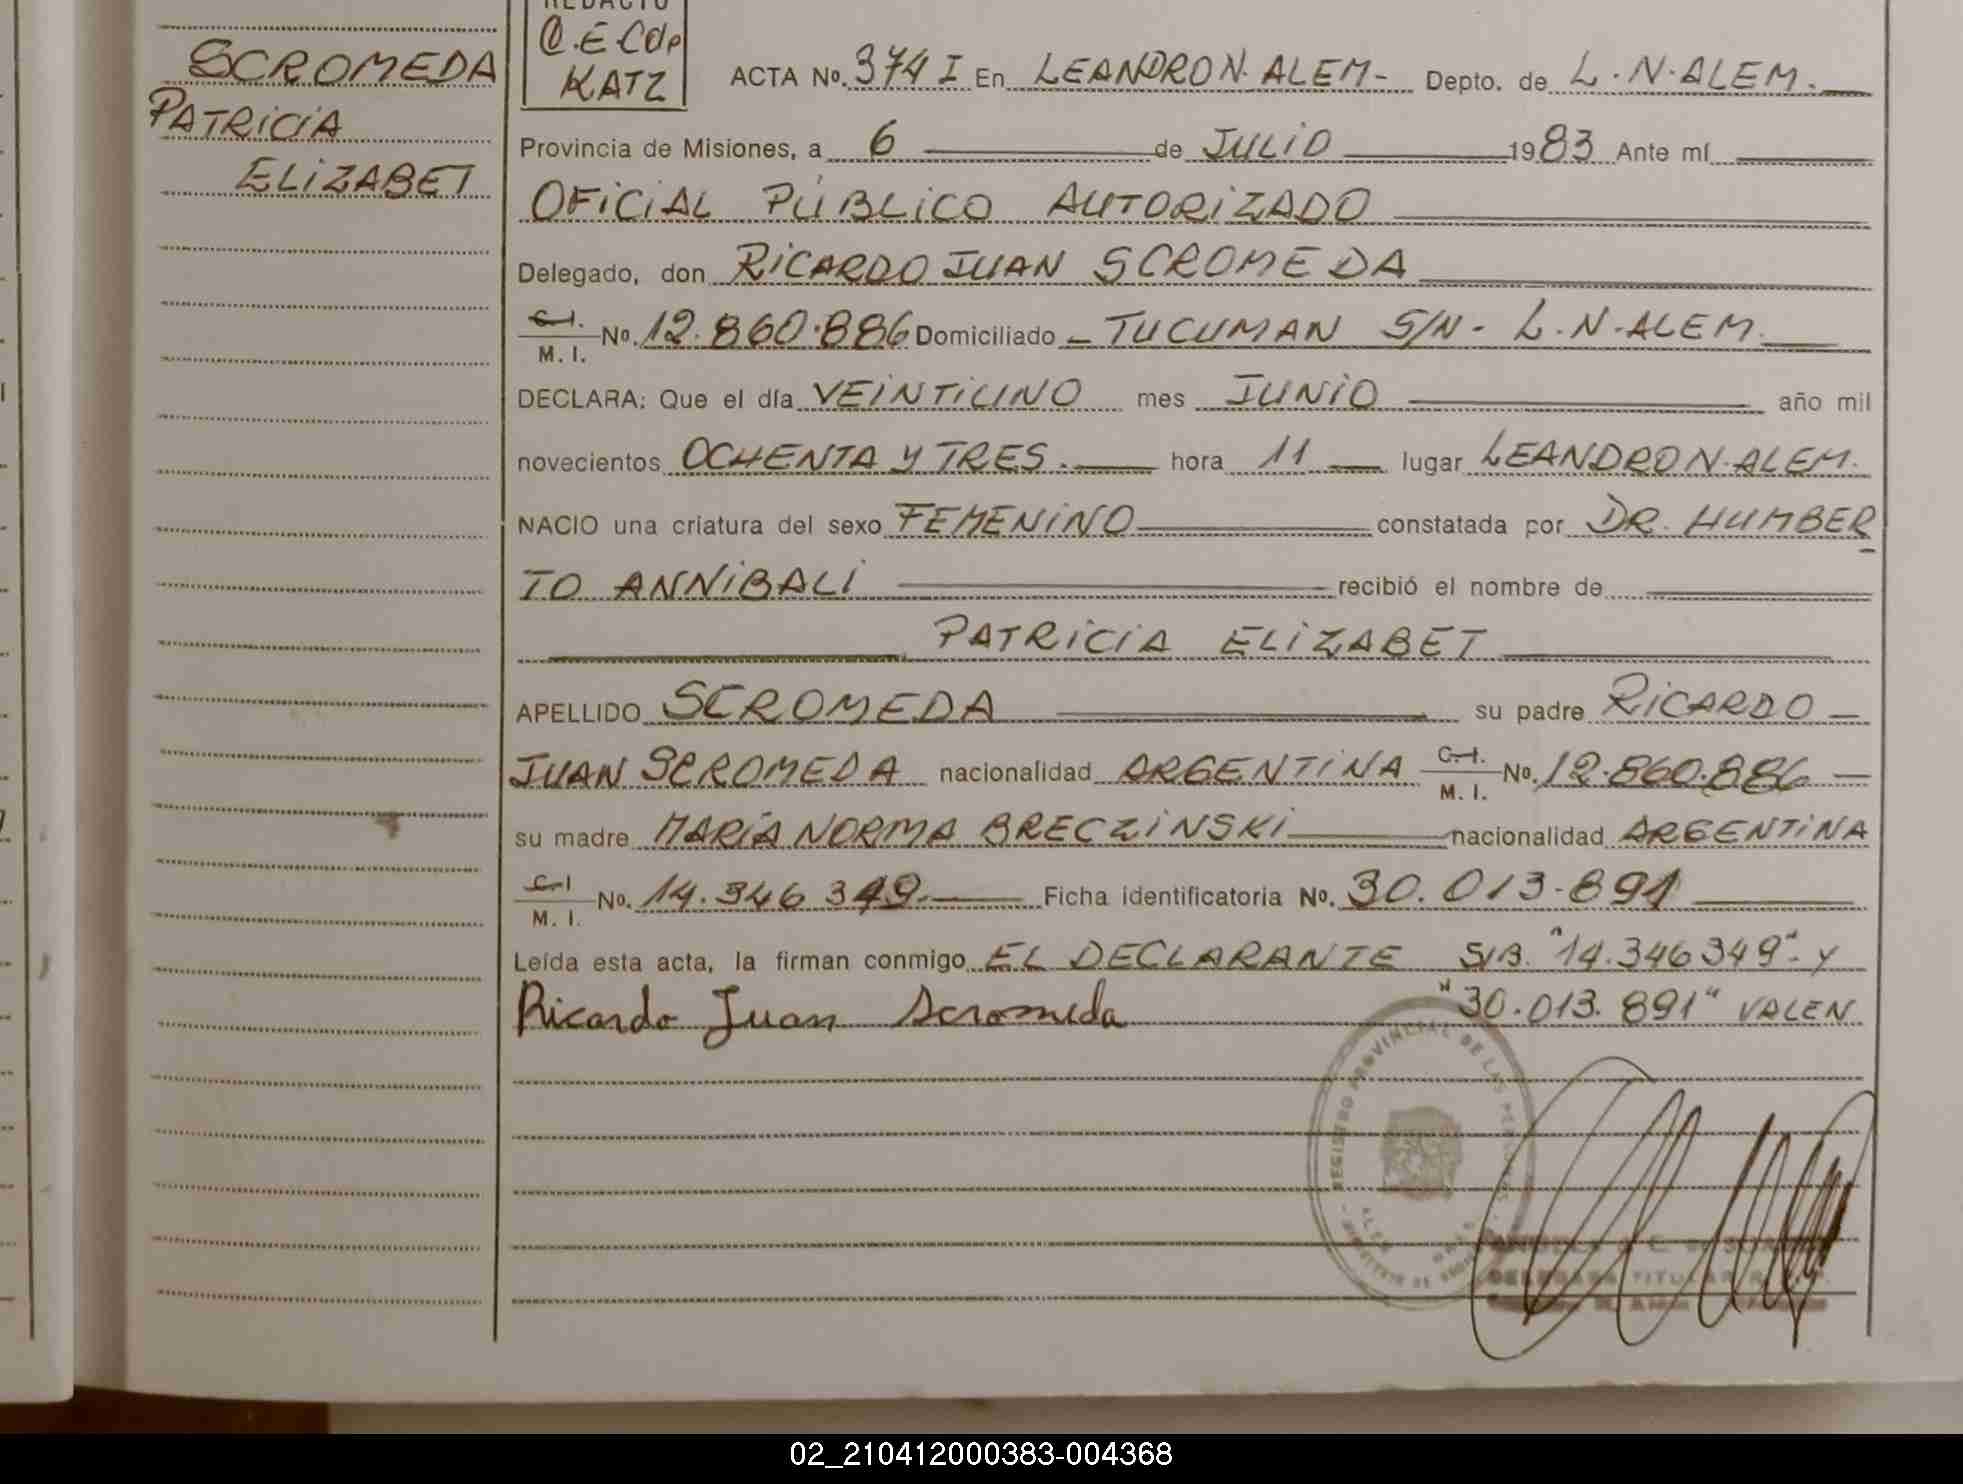 SCROMEDA
PATRICIA
ELIZABET
REDACTO
C.E.Cdp
KATZ
ACTA No. 374 I En LEANDRO N. ALEM- Depto. de L.N.ALEM.
Provincia de Misiones, a 6 de JULIO 1983 Ante mí
OFICIAL PÚBLICO AUTORIZADO
Delegado, don RICARDO JUAN SCROMEDA
C.I. M.I. No. 12.860.886 Domiciliado - TUCUMAN S/N- L.N.ALEM.
DECLARA: Que el día VEINTIUNO mes JUNIO año mil
novecientos OCHENTA Y TRES. hora 11 lugar LEANDRO N.ALEM.
NACIO una criatura del sexo FEMENINO constatada por DR. HUMBER
TO ANNIBALI recibió el nombre de
PATRICIA ELIZABET
APELLIDO SCROMEDA su padre RICARDO
JUAN SCROMEDA nacionalidad ARGENTINA C.I. M.I. No. 12.860.886
su madre MARÍA NORMA BRECZINSKI nacionalidad ARGENTINA
C.I M.I. No. 14.346 349. Ficha identificatoria No. 30.013.891
Leída esta acta, la firman conmigo EL DECLARANTE S/B. "14.346349". Y
Ricardo Juan Scromeda "30.013.891" VALEN
REGISTRO PROVINCIAL DE LAS PERSONAS
DELEGADA TITULAR
02_210412000383-004368